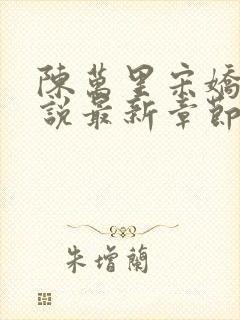 陳萬里宋嬌
說最新章節
朱增蘭